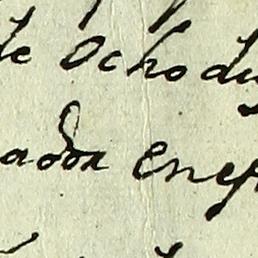 te Ocho du
ador enef